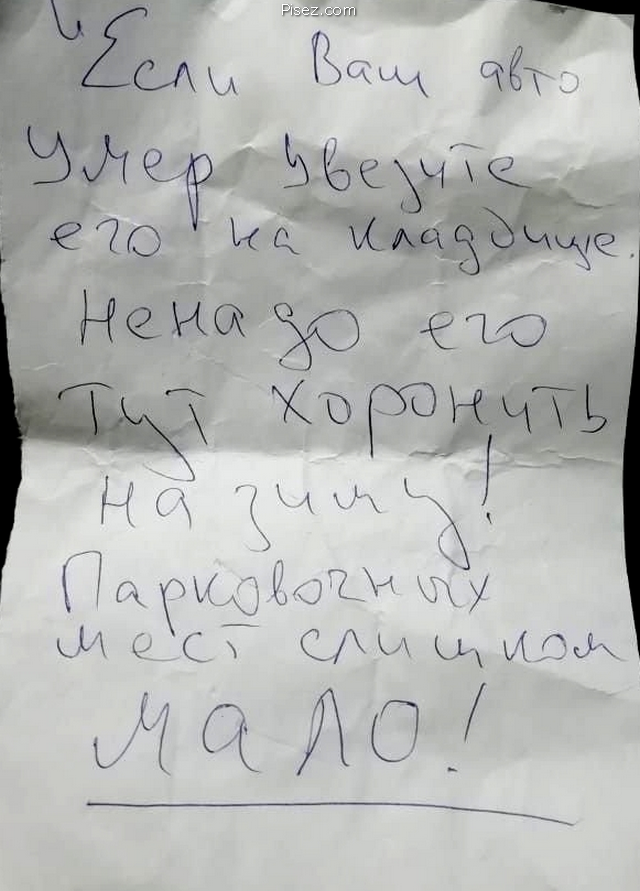 Pisez.com
"Если Ваш авто
Умер увезите
его на кладбище.
Ненадо его
тут хоронить
на зиму!
Парковочных
мест слишком
мало!